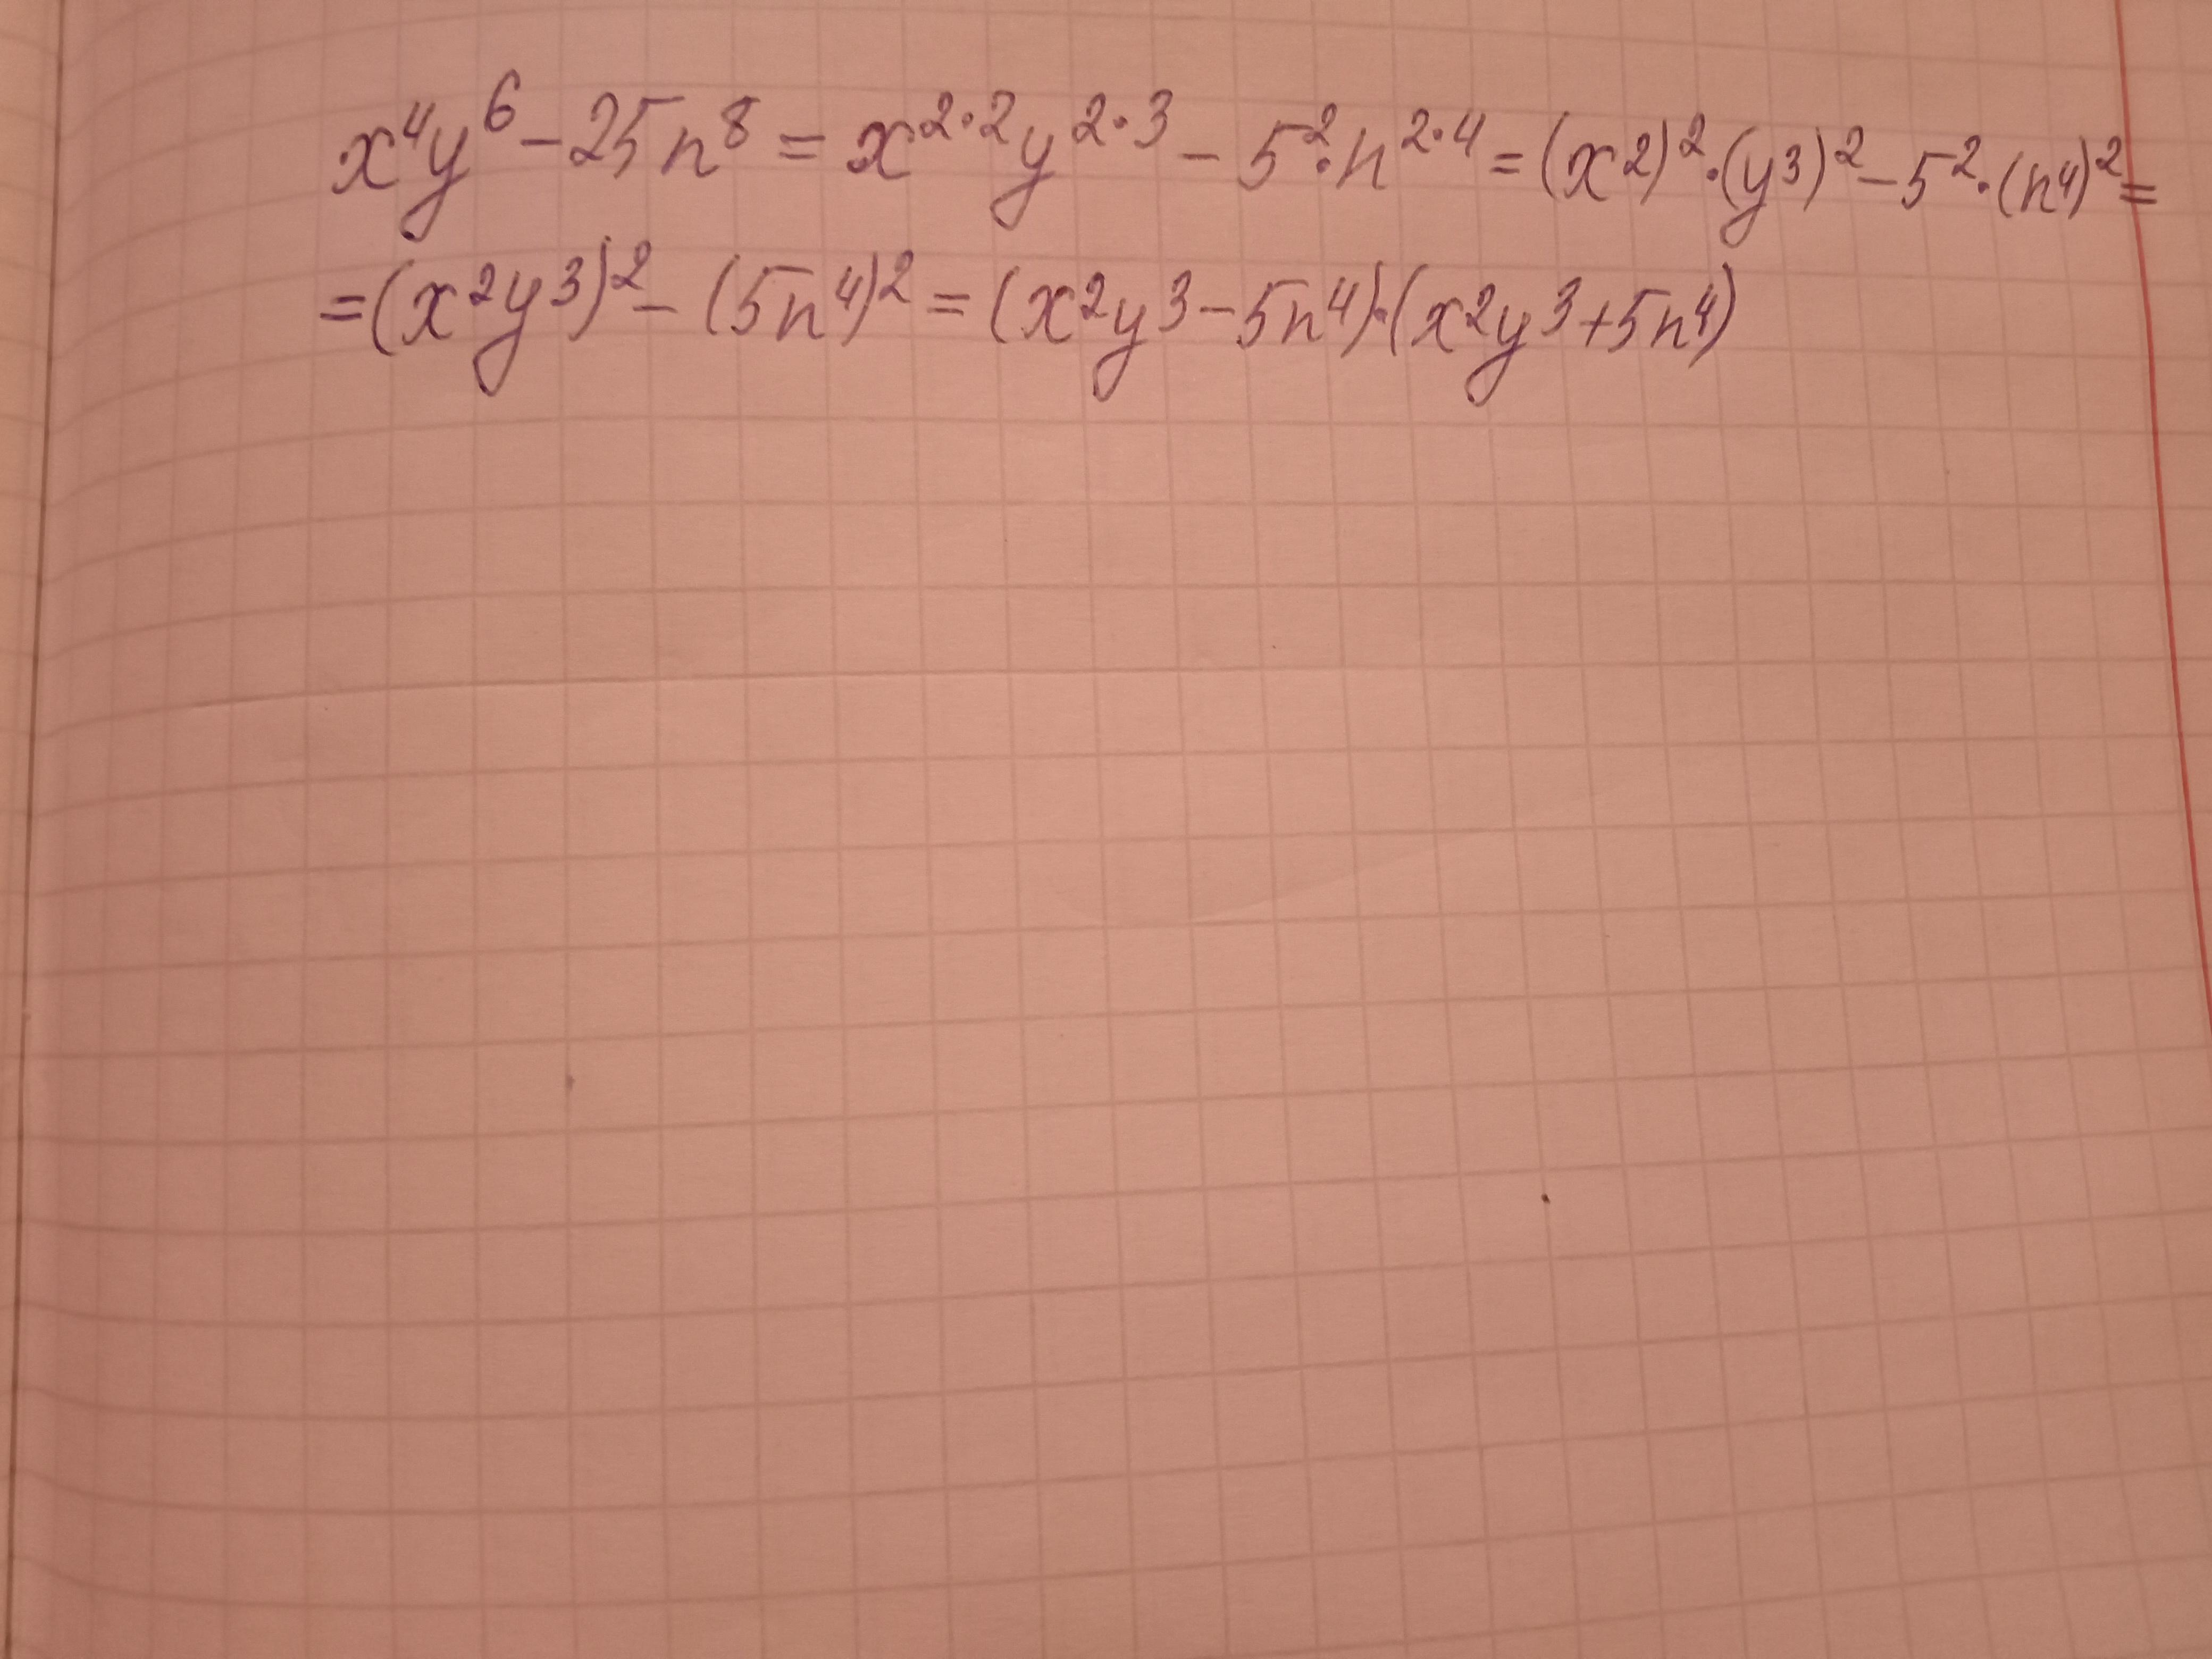 x⁴y⁶ − 25n⁸ = x²·²y²·³ − 5²·n²·⁴ = (x²)²·(y³)² − 5²·(n⁴)² =
= (x²y³)² − (5n⁴)² = (x²y³ − 5n⁴)·(x²y³ + 5n⁴)